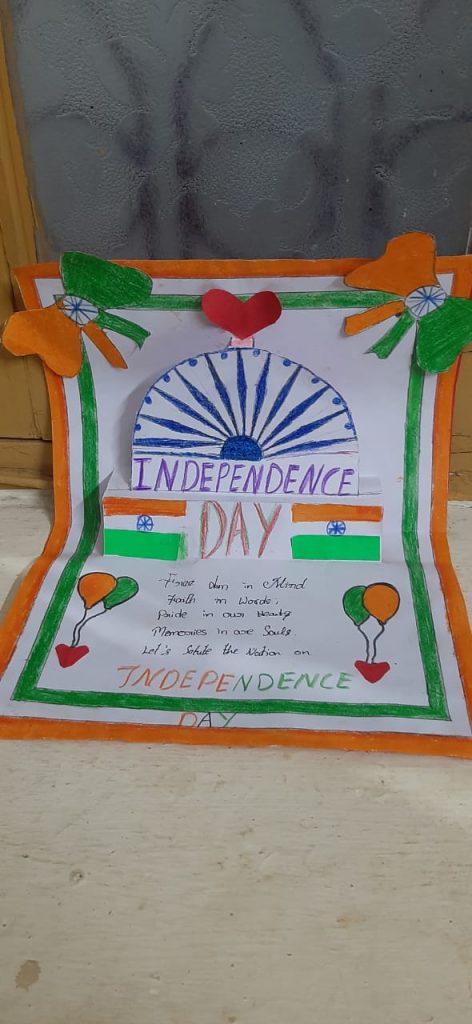 INDEPENDENCE
DAY
in Mind
Faith in Words,
Pride in our
Memories in our Souls.
Let's Salute the Nation on
INDEPENDENCE
DAY